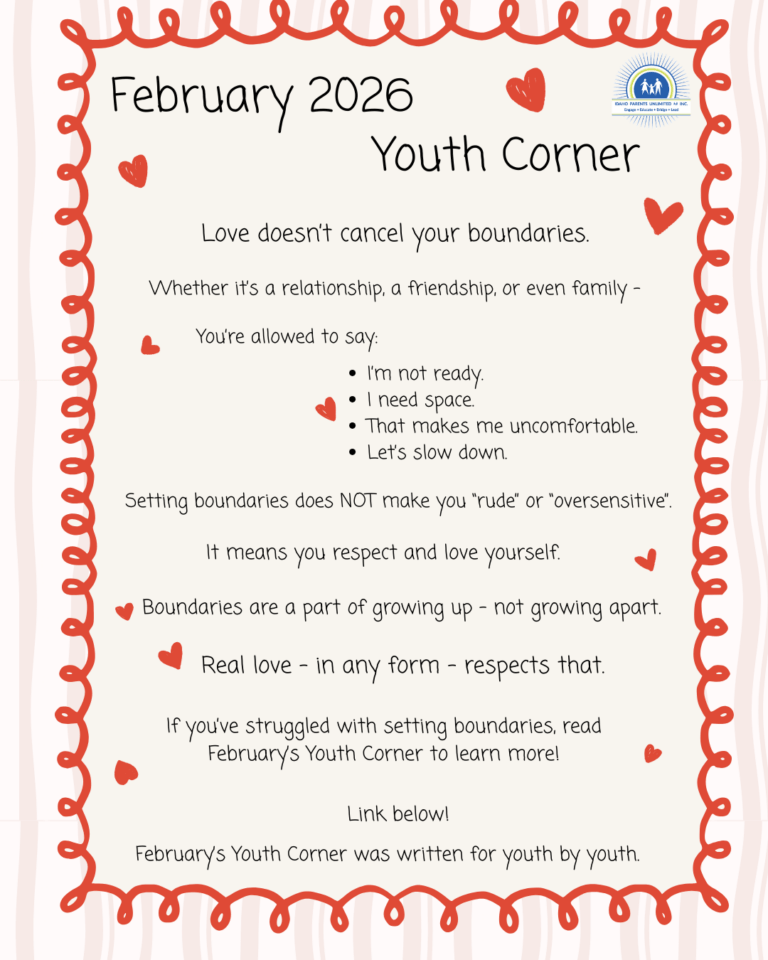 February 2026
IDAHO PARENTS UNLIMITED, INC.
Engage • Educate • Bridge • Lead
Youth Corner
Love doesn't cancel your boundaries.
Whether it's a relationship, a friendship, or even family -
You're allowed to say:
• I'm not ready.
• I need space.
• That makes me uncomfortable.
• Let's slow down.
Setting boundaries does NOT make you "rude" or "oversensitive".
It means you respect and love yourself.
Boundaries are a part of growing up - not growing apart.
Real love - in any form - respects that.
If you've struggled with setting boundaries, read
February's Youth Corner to learn more!
Link below!
February's Youth Corner was written for youth by youth.